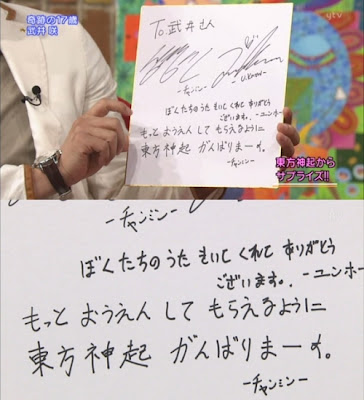 奇跡の17歳
武井 咲
ytv
To.武井さん
-チャンミン-
-U.know-
ぼくたちのうた きいて くれて ありがとう
ございます。-ユンホ-
もっと おうえん して もらえるように
東方神起 がんばりまーす。
-チャンミン-
東方神起から
サプライズ!!
-チャンミン-
ぼくたちのうた きいて くれて ありがとう
ございます。-ユンホー
もっと おうえん して もらえるように
東方神起 がんばりまーす。
-チャンミン-